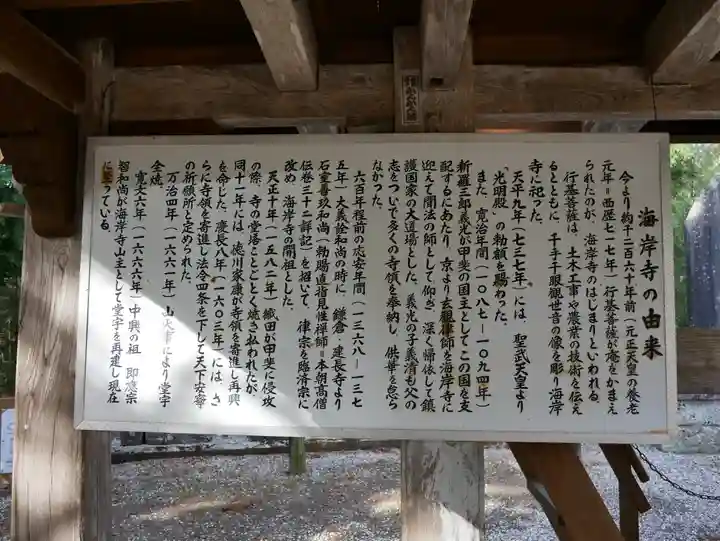 海岸寺の由来
今より約千二百六十年前（元正天皇の養老
元年＝西歴七一七年）行基菩薩が庵をかまえ
られたのが、海岸寺のはじまりといわれる。
行基菩薩は、土木工事や農業の技術を伝え
るとともに、千手千眼観世音の像を彫り海岸
寺に祀った。
天平九年（七三七年）には、聖武天皇より
〝光明殿〟の勅額を賜わった。
また、寛治年間（一〇八七ー一〇九四年）
新羅三郎義光が甲斐の国主としてこの国を支
配するにあたり、京より玄観律師を海岸寺に
迎えて聞法の師として仰ぎ、深く帰依して鎮
護国家の大道場とした。義光の子義清も父の
志をついで多くの寺領を奉納し、供華を怠ら
なかった。
六百年程前の応安年間（一三六八ー一三七
五年）大義詮和尚の時に、鎌倉・建長寺より
石室善玖和尚（勅賜直指見性禅師＝本朝高僧
伝巻三十二詳記）を招いて、律宗を臨済宗に
改め、海岸寺の開祖とした。
天正十年（一五八二年）織田が甲斐に侵攻
の際、寺の堂塔ことごとく焼き払われたが、
同十一年には、徳川家康が寺領を寄進し再興
を命じた。慶長八年（一六〇三年）には、さ
らに寺領を寄進し法令四条を下して天下安寧
の祈願所と定められた。
万治四年（一六六一年）山火事により堂宇
全焼。
寛文六年（一六六六年）中興の祖 即應宗
智和尚が海岸寺山主として堂宇を再建し現在
に至っている。